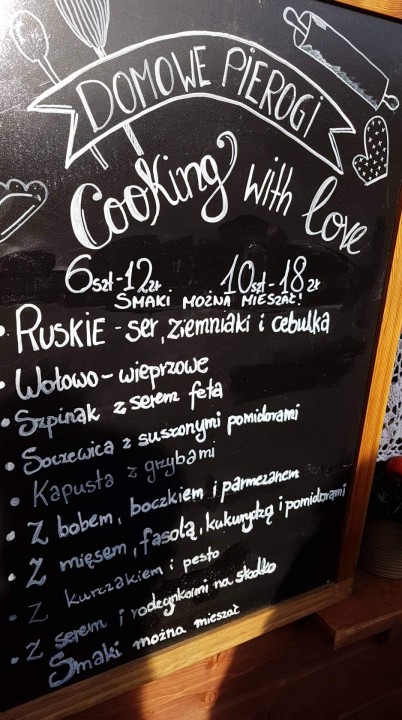 DOMOWE PIEROGI
Cooking with love
6szt-12zł 10szt-18zł
SMAKI MOŻNA MIESZAĆ!
• RUSKIE - ser, ziemniaki i cebulka
• Wołowo-wieprzowe
• Szpinak z serem feta
• Soczewica z suszonymi pomidorami
• Kapusta z grzybami
• Z bobem, boczkiem i parmezanem
• Z mięsem, fasolą, kukurydzą i pomidorami
• Z kurczakiem i pesto
• Z serem i rodzynkami na słodko
Smaki można mieszać